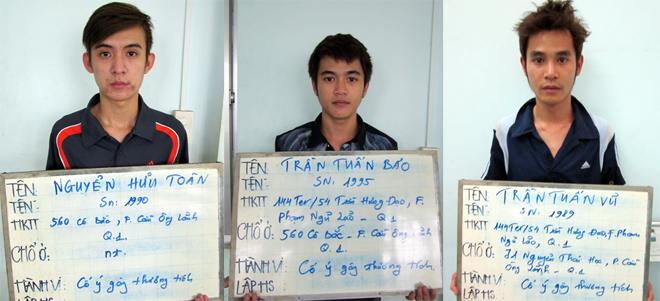 TÊN: NGUYỄN HỮU TOÀN
TÊN: Sn: 1990
HKTT 560 Cô Bắc, P. Cầu Ông Lãnh
Q.1.
CHỖ Ở: nt.
HÀNH VI: Cố ý gây thương tích
LẬP HS
TÊN: TRẦN TUẤN BẢO
TÊN: SN: 1995
HKTT 144Ter/54 Trần Hưng Đạo, F.
Phạm Ngũ Lão - Q.1
CHỖ Ở: 560 Cô Bắc - P. Cầu Ông Lãnh
Q.1.
HÀNH VI: Cố ý gây thương tích
LẬP HS
TÊN: TRẦN TUẤN VŨ
TÊN: SN: 1989
HKTT 144Ter/54 Trần Hưng Đạo, F. Phạm
Ngũ Lão, Q.1
CHỖ Ở: Nguyễn Thái Học, P. Cầu
Ông Lãnh - Q.1
HÀNH VI: Cố ý gây thương tích
LẬP HS